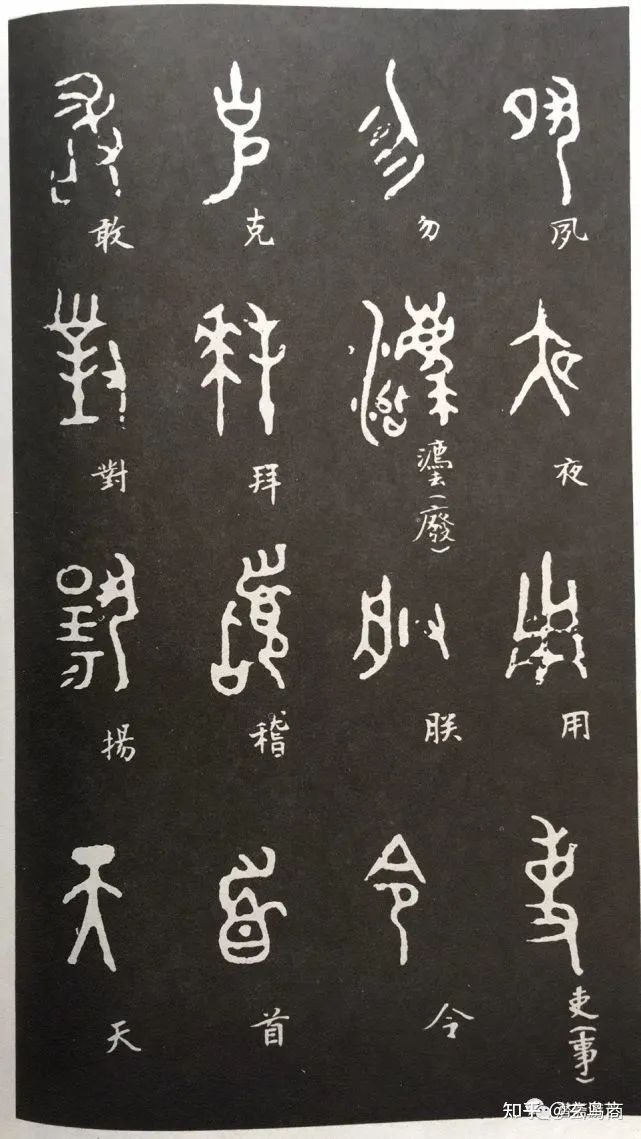 夙夜用吏(事)
勿灋(廢)朕令
克拜稽首
敢對揚天
知乎 @玄鸟商